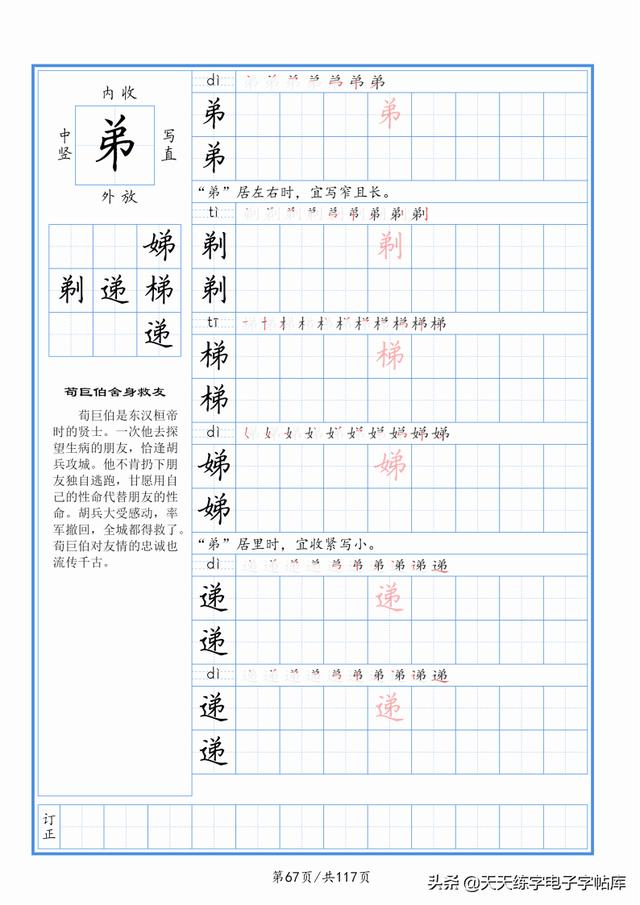 内收
中竖
弟
写直
外放
娣
剃 递 梯
递
荀巨伯舍身救友
荀巨伯是东汉桓帝
时的贤士。一次他去探
望生病的朋友，恰逢胡
兵攻城。他不肯扔下朋
友独自逃跑，甘愿用自
己的性命代替朋友的性
命。胡兵大受感动，率
军撤回，全城都得救了。
荀巨伯对友情的忠诚也
流传千古。
dì
弟 弟
弟
“弟”居左右时，宜写窄且长。
tì
剃 剃
剃
tī
梯 梯
梯
dì
娣 娣
娣
“弟”居里时，宜收紧写小。
dì
递 递
递
dì
递 递
递
订正
第67页/共117页
头条 @天天练字电子字帖库